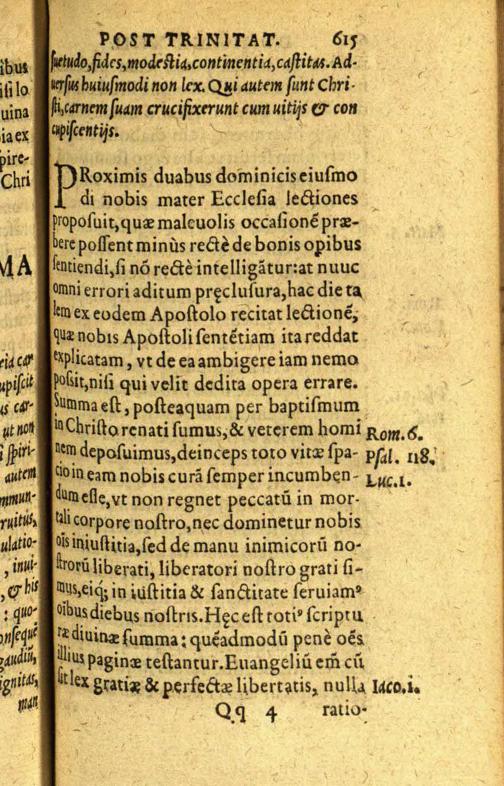 ibus
isi lo
uina
ia ex
pire-
Chri
MA
eia car
upiscit
us car-
ut non
i spiri-
autem
mmun-
ruitus,
ulatio-
, inui-
, & his
: quo-
onsequē
gaudiū,
ignitas,
man
POST TRINITAT. 615
suetudo, fides, modestia, continentia, castitas. Ad-
uersus huiusmodi non lex. Qui autem sunt Chri-
sti, carnem suam crucifixerunt cum uitijs & con
cupiscentijs.
PRoximis duabus dominicis eiusmo
di nobis mater Ecclesia lectiones
proposuit, quæ maleuolis occasionē præ-
bere possent minùs rectè de bonis opibus
sentiendi, si nō rectè intelligātur: at nuuc
omni errori aditum pręclusura, hac die ta
lem ex eodem Apostolo recitat lectionē,
quæ nobis Apostoli sentētiam ita reddat
explicatam, vt de ea ambigere iam nemo
possit, nisi qui velit dedita opera errare.
Summa est, posteaquam per baptismum
in Christo renati sumus, & veterem homi
nem deposuimus, deinceps toto vitæ spa-
cio in eam nobis curā semper incumben-
dum esse, vt non regnet peccatū in mor-
tali corpore nostro, nec dominetur nobis
oīs iniustitia, sed de manu inimicorū no-
strorū liberati, liberatori nostro grati si-
mus, eiq; in iustitia & sanctitate seruiamꝰ
oībus diebus nostris. Hęc est totiꝰ scriptu
ræ diuinæ summa: quēadmodū penè oēs
illius paginæ testantur. Euangeliū em̄ cū
sit lex gratiæ & perfectæ libertatis, nulla
Qq 4 ratio-
Rom. 6.
Psal. 118.
Luc. 1.
Iaco. i.